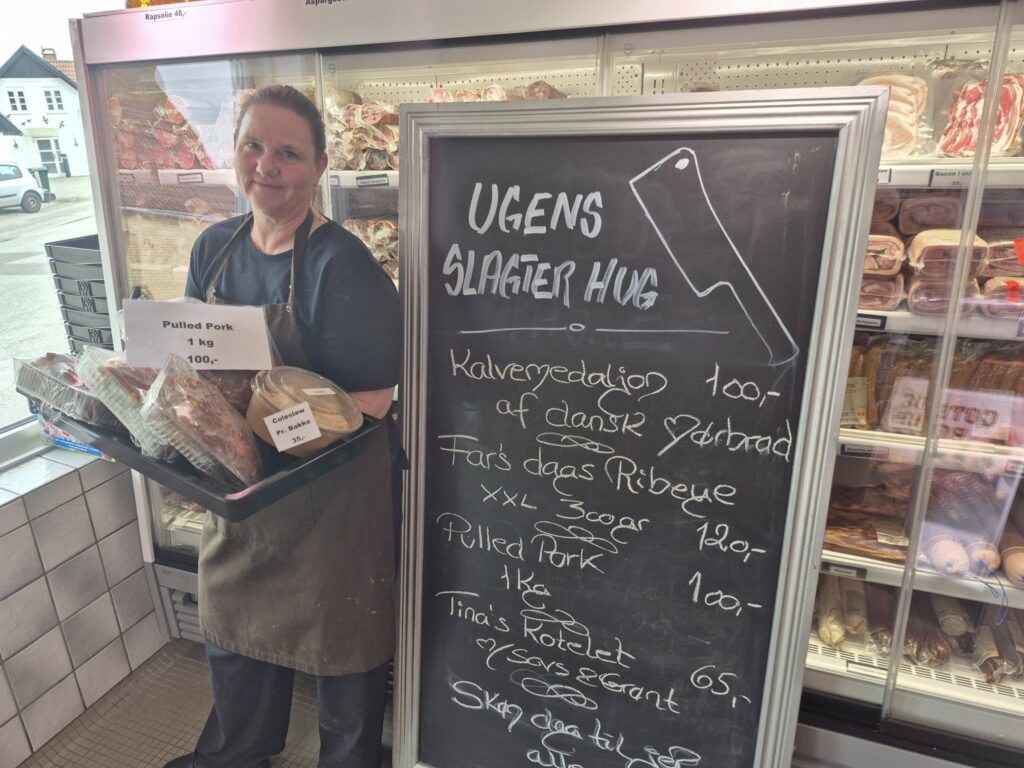 Rapsolie 48,-
Pulled Pork
1 kg
100,-
Coleslaw
Pr. Bakke
35,-
UGENS
SLAGTER HUG
Kalvemedaljon 100,-
af dansk Mørbrad
Fars dags Ribeye
XXL 300gr 120,-
Pulled Pork
1kg 100,-
Tina's Kotelet
m/sovs & Grønt 65,-
Bacon i ski
30,-